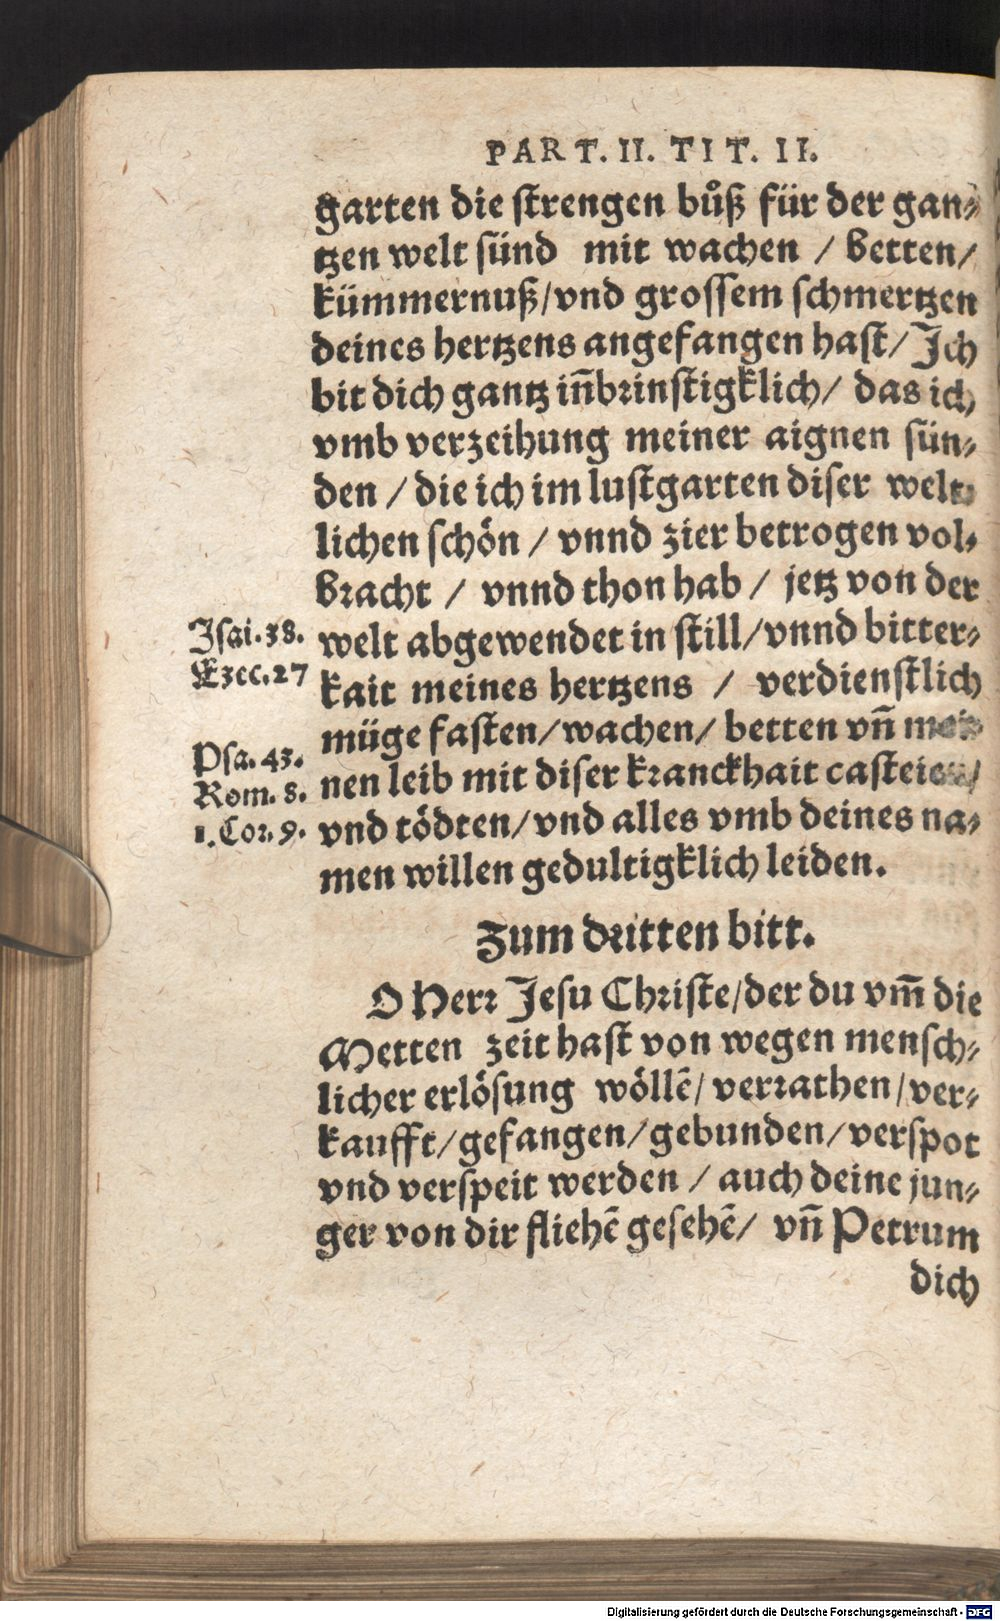 PART. II. TIT. II.
garten die strengen bůß für der gan⸗
tzen welt sünd mit wachen / betten/
kümmernuß/vnd grossem schmertzen
deines hertzens angefangen hast/ Ich
bit dich gantz in̄brinstigklich/ das ich
vmb verzeihung meiner aignen sün⸗
den / die ich im lustgarten diser welt⸗
lichen schön / vnnd zier betrogen vol⸗
bracht / vnnd thon hab / jetz von der
Isai. 38.
welt abgewendet in still/vnnd bitter⸗
Ezec. 27
kait meines hertzens / verdienstlich
müge fasten/wachen/ betten vn̄ mei⸗
Psa. 43.
nen leib mit diser kranckhait casteien/
Rom. 8.
vnd tödten/vnd alles vmb deines na⸗
1. Cor. 9.
men willen gedultigklich leiden.
Zum dritten bitt.
O Herr Jesu Christe/der du vm̄ die
Metten zeit hast von wegen mensch⸗
licher erlösung wöllē/ verrathen/ver⸗
kaufft/gefangen/gebunden/verspot
vnd verspeit werden / auch deine jun⸗
ger von dir fliehē gesehē/ vn̄ Petrum
dich
Digitalisierung gefördert durch die Deutsche Forschungsgemeinschaft - DFG